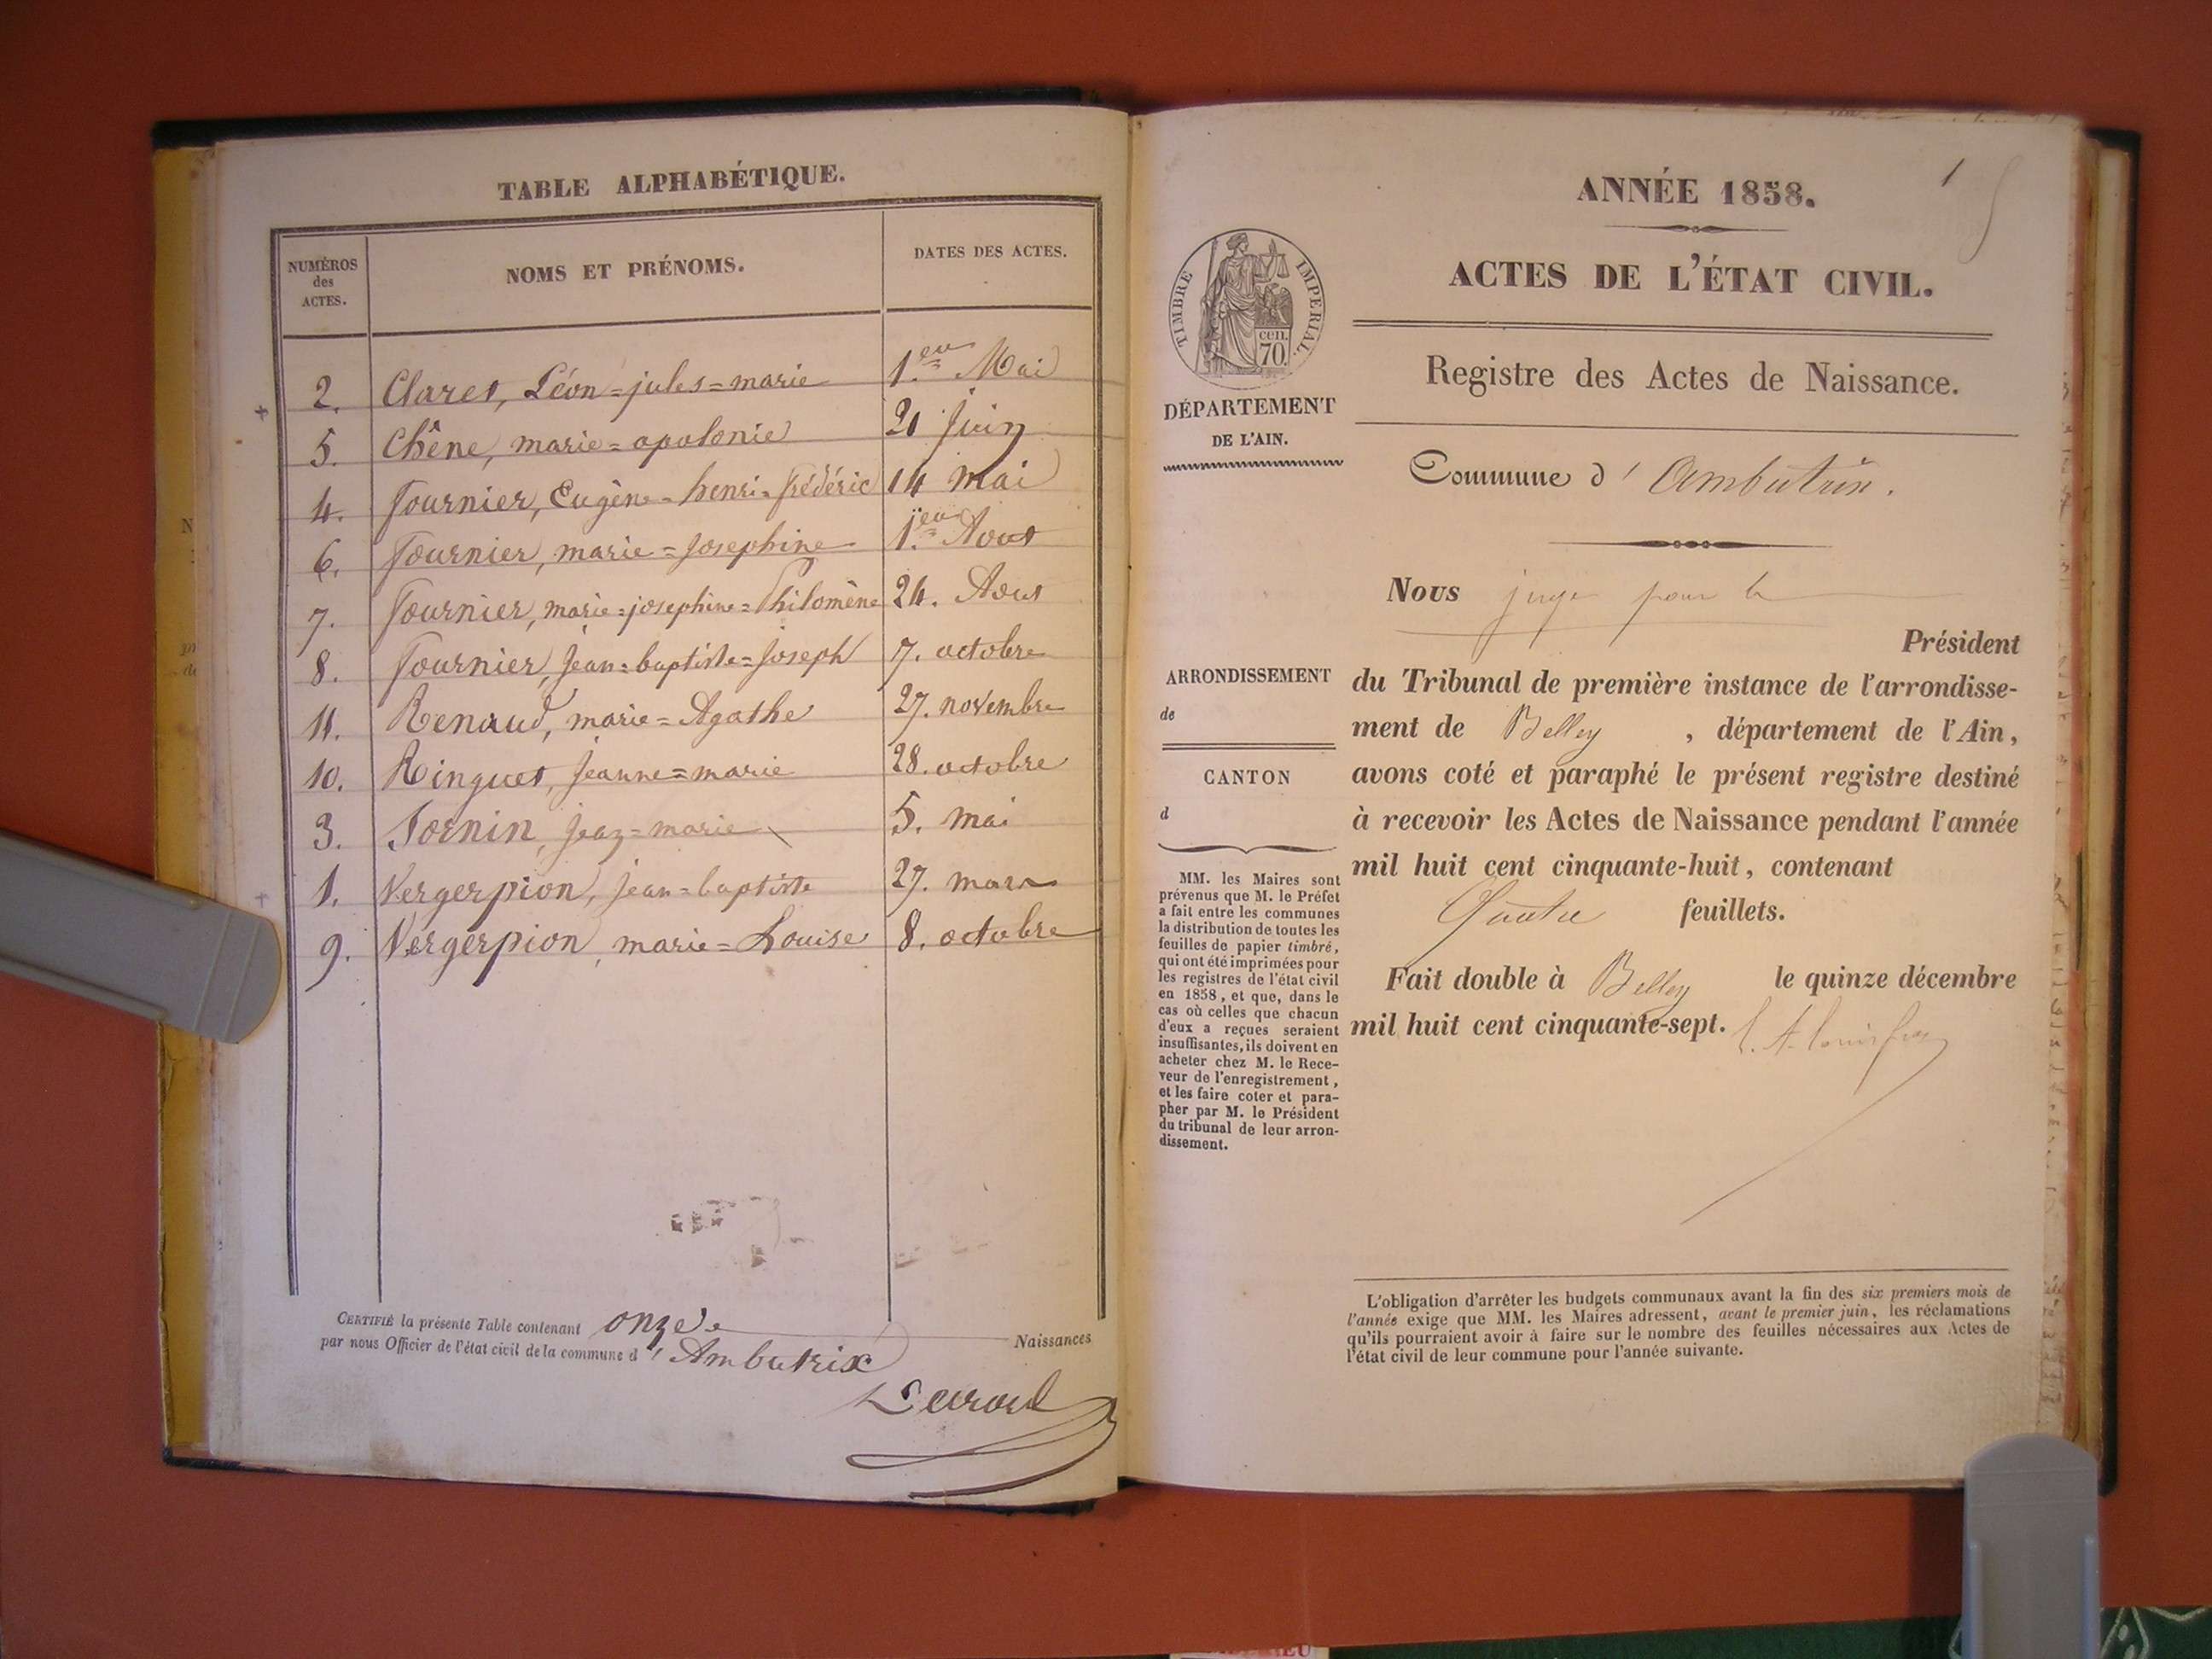 TABLE ALPHABÉTIQUE.
NUMÉROS des ACTES.
NOMS ET PRÉNOMS.
DATES DES ACTES.
2. Claret, Léon=jules=marie 1.er Mai
5. Chêne, marie=apolonie 21 Juin
4. Fournier, Eugène=henri=frédéric 14 mai
6. Fournier, marie=Josephine 1.er Aout
7. Fournier, marie=josephine=Philomène 24. Aout
8. Fournier, Jean=baptiste=Joseph 7. octobre
11. Renaud, marie=Agathe 27. novembre
10. Ringuet, Jeanne=marie 28. octobre
3. Tornin, Jean=marie 5. mai
1. Vergerpion, Jean=baptiste 27. mars
9. Vergerpion, marie=Louise 8. octobre
CERTIFIÉ la présente Table contenant onze Naissances
par nous Officier de l'état civil de la commune d'Ambutrix
1
ANNÉE 1858.
ACTES DE L'ÉTAT CIVIL.
TIMBRE IMPERIAL.
cen. 70.
Registre des Actes de Naissance.
DÉPARTEMENT
DE L'AIN.
Commune d'Ambutrix.
Nous juge pour le
Président
ARRONDISSEMENT
de
CANTON
d
du Tribunal de première instance de l'arrondisse-
ment de Belley, département de l'Ain,
avons coté et paraphé le présent registre destiné
à recevoir les Actes de Naissance pendant l'année
mil huit cent cinquante-huit, contenant
Quatre feuillets.
Fait double à Belley le quinze décembre
mil huit cent cinquante-sept.
MM. les Maires sont
prévenus que M. le Préfet
a fait entre les communes
la distribution de toutes les
feuilles de papier timbré,
qui ont été imprimées pour
les registres de l'état civil
en 1858, et que, dans le
cas où celles que chacun
d'eux a reçues seraient
insuffisantes, ils doivent en
acheter chez M. le Rece-
veur de l'enregistrement,
et les faire coter et para-
pher par M. le Président
du tribunal de leur arron-
dissement.
L'obligation d'arrêter les budgets communaux avant la fin des six premiers mois de
l'année exige que MM. les Maires adressent, avant le premier juin, les réclamations
qu'ils pourraient avoir à faire sur le nombre des feuilles nécessaires aux Actes de
l'état civil de leur commune pour l'année suivante.